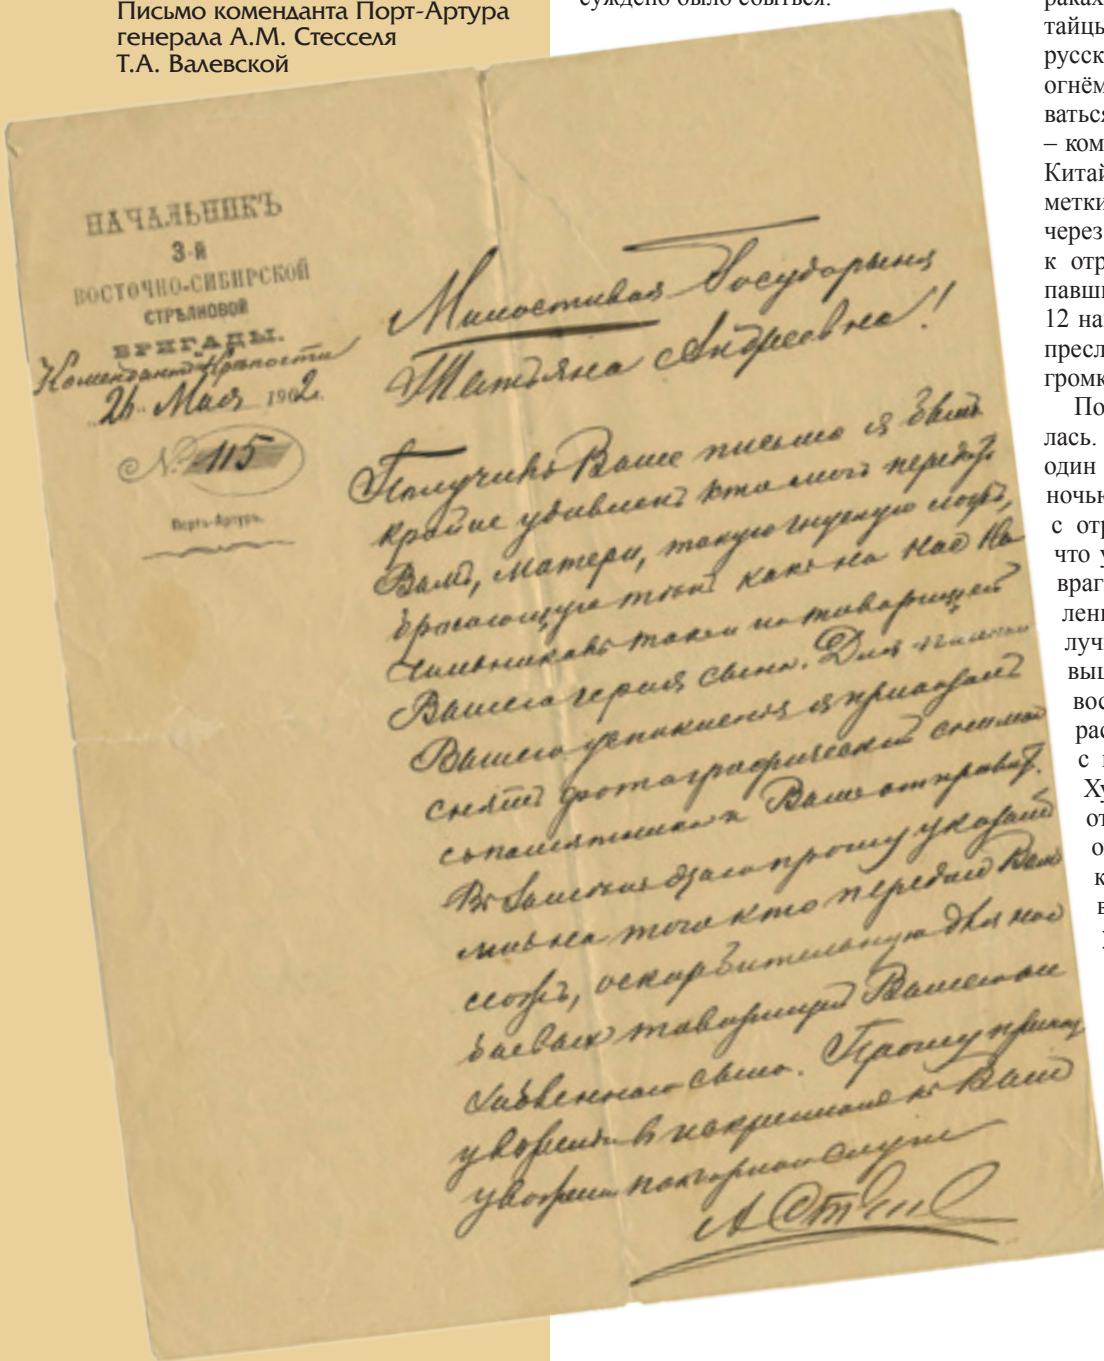 Письмо коменданта Порт-Артура
генерала А.М. Стесселя
Т.А. Валевской
суждено было сбыться.
НАЧАЛЬНИКЪ
3-й
ВОСТОЧНО-СИБИРСКОЙ
СТРѢЛКОВОЙ
БРИГАДЫ.
Комендантъ Крѣпости
„26“ Мая 1902 г.
№ 115
Портъ-Артуръ.
Милостивая Государыня
Татьяна Андреевна!
Получивъ Ваше письмо я былъ
крайне удивленъ кто могъ передать
Вамъ, матери, такую гнусную ложь,
бросающую тѣнь какъ на нас На
чальниковъ такъ и на товарищей
Вашего героя сына. Для
Вашего успокоенія я приказалъ
снять фотографический снимок
съ памятника и Вамъ отправить.
прошу указать
мнѣ на того кто передал Вам
ложь, оскорбительную для нас
боевых товарищей Вашего
сына. Прошу принять
увѣреніе в искреннем къ Вамъ
уваженіи покорный слуга
А Стессель
раках
тайцы
русск
огнём
ваться
– ком
Китай
метки
через
к отр
павши
12 на
пресл
громк
По
лась.
один
ночью
с отр
что у
враг
лен
луч
выш
вос
рас
с
Ху
от
о
к
в